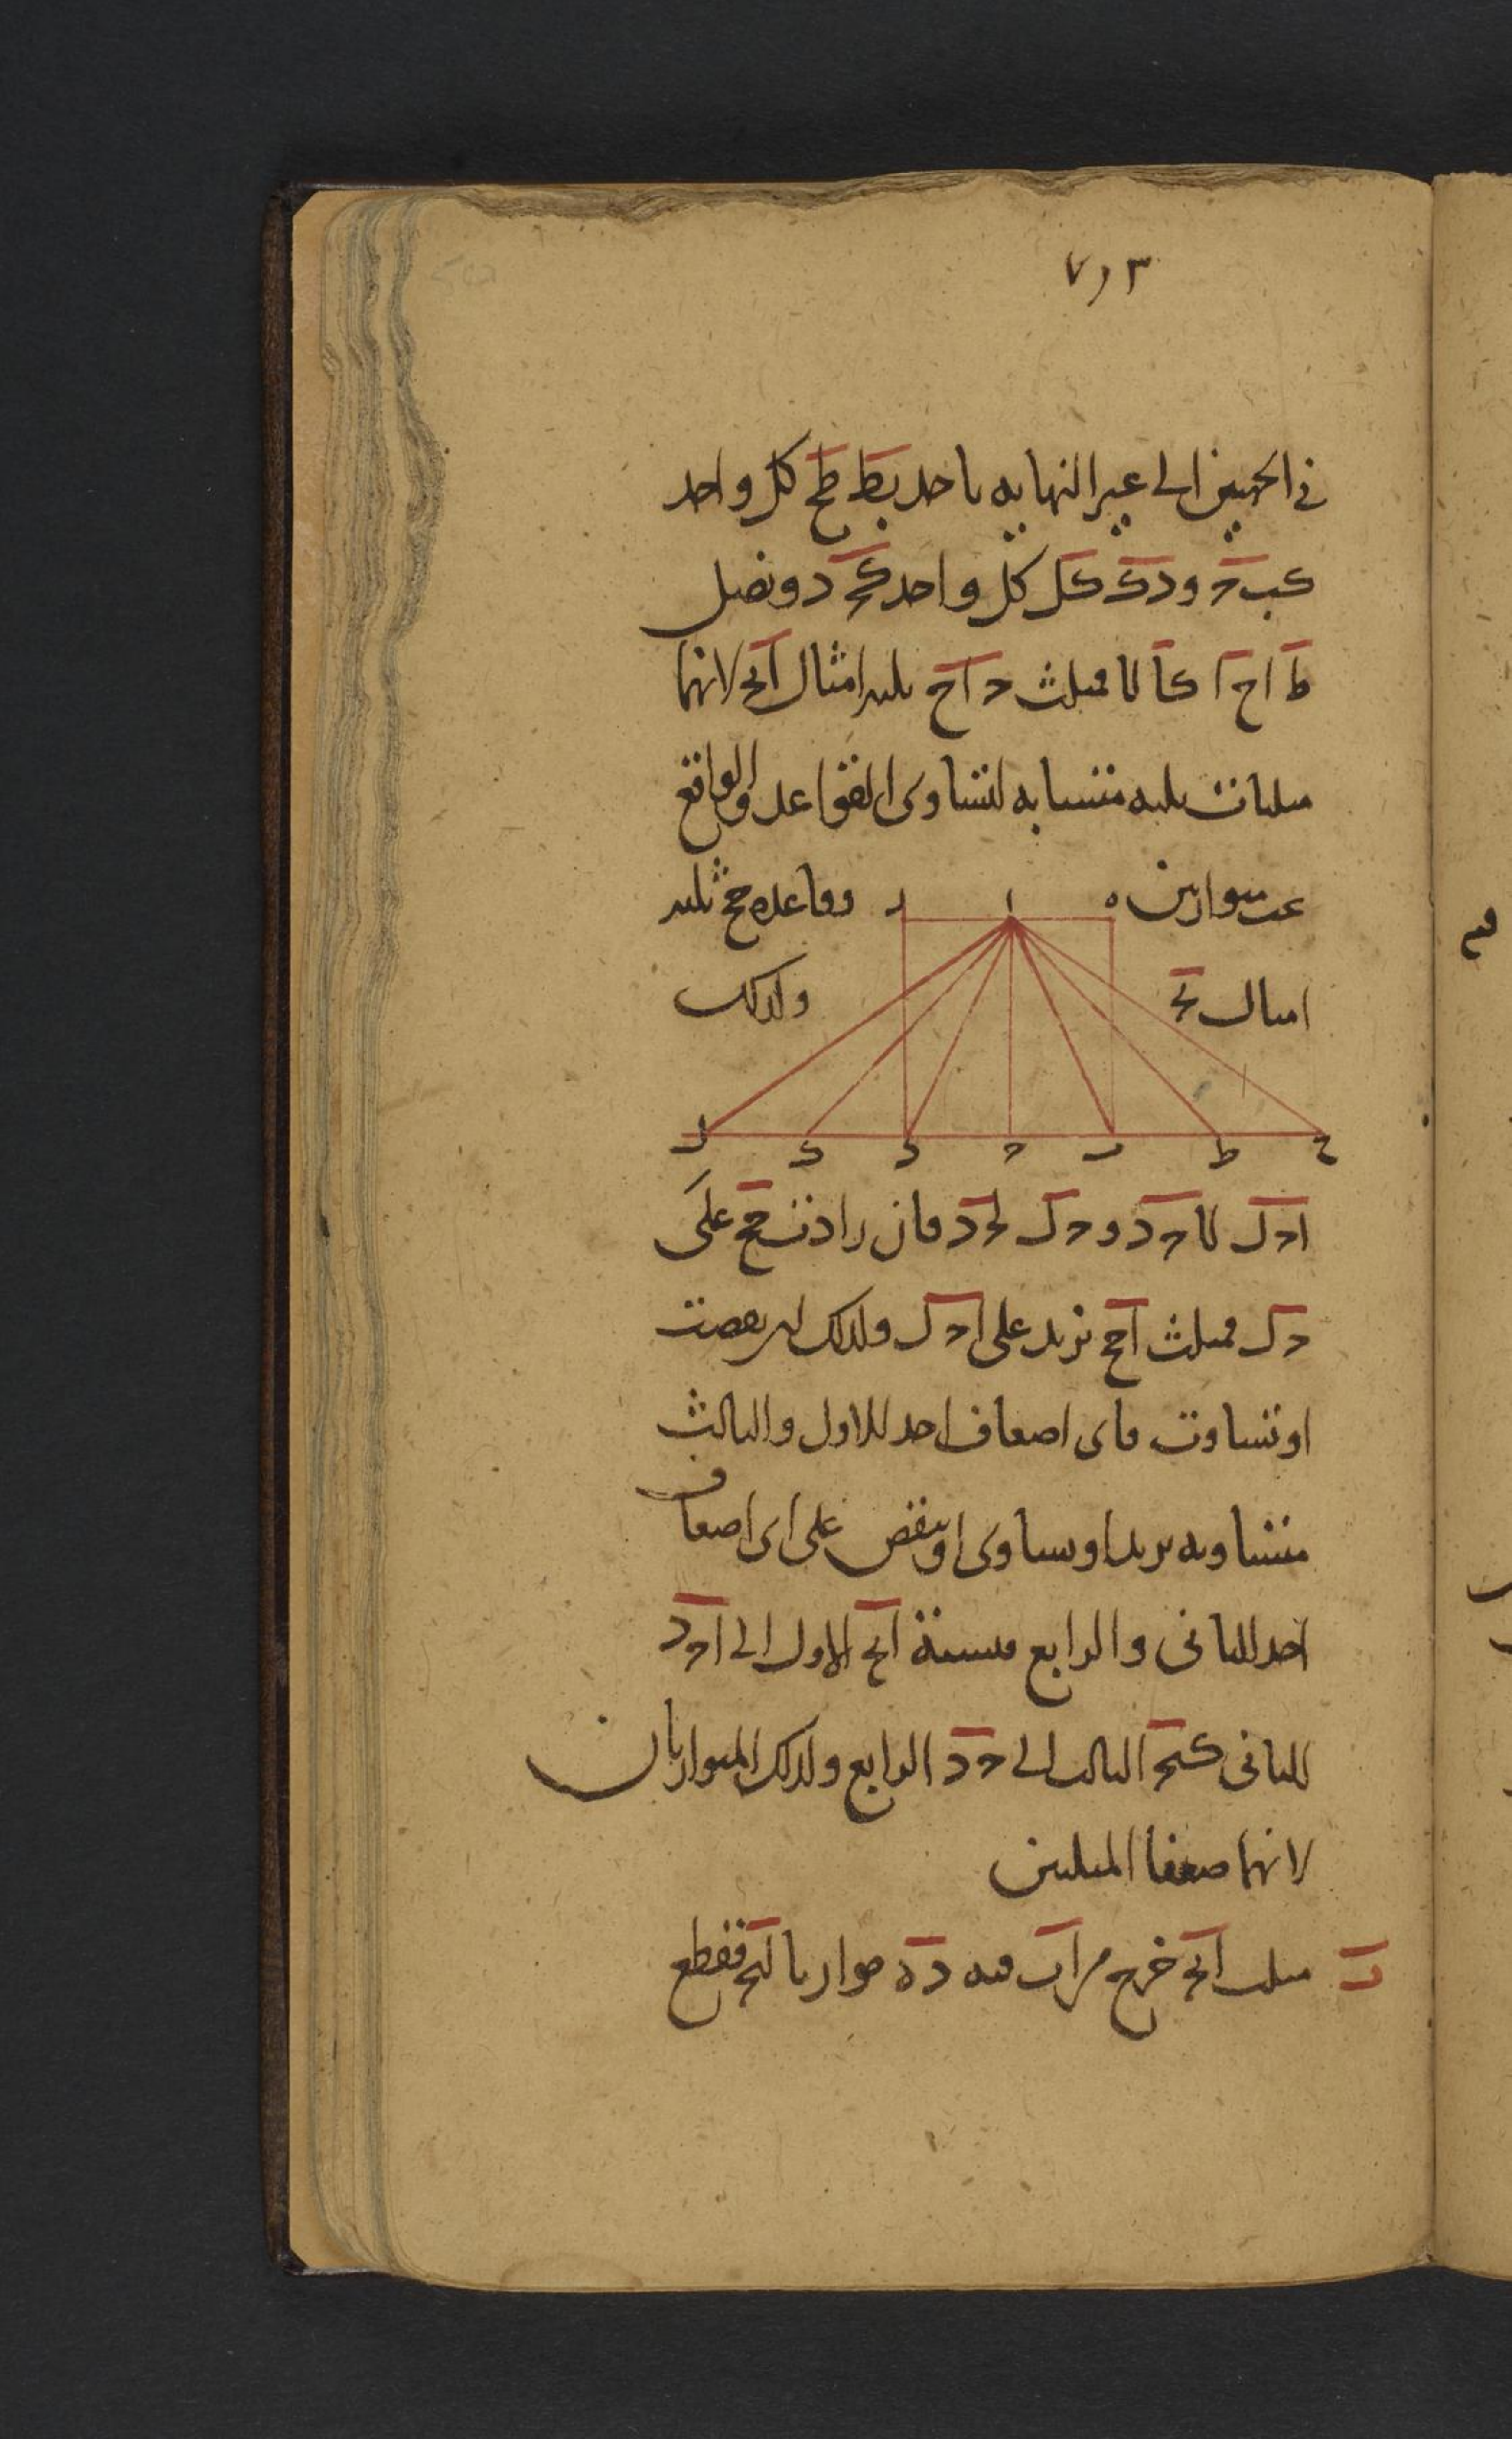 ٧١٣
في الجهتين الى غير النهايه ناخذ بط طح كل واحد
كبح ودك كل كل واحد كحد ونصل
اط اح اك ال فمثلث ح ا ح ثلثه امثال ابح لانها
مثلثات ثلثه متشابه لتساوى القواعد والواقع
بين متوازيين وقاعده حح ثلثه
امثال بح ولذلك
ه ا ر
ح ط ب ح د ك ل
احل لاحد وحل لحد فان زادت حح على
حل فمثلث احح تزيد على احل ولذلك ان نقصت
او تساوت فاى اضعاف اخذ للاول والثالث
متساويه يزيد او يساوى او ينقص على اى اضعاف
اخذ للثانى والرابع فنسبة ابح الاول الى احد
الثانى كبح الثالث الى حد الرابع ولذلك المتوازيان
لانهما ضعفا المثلثين
ب مثلث ابح خرج من اب فيه ده موازيا لبح فقطع